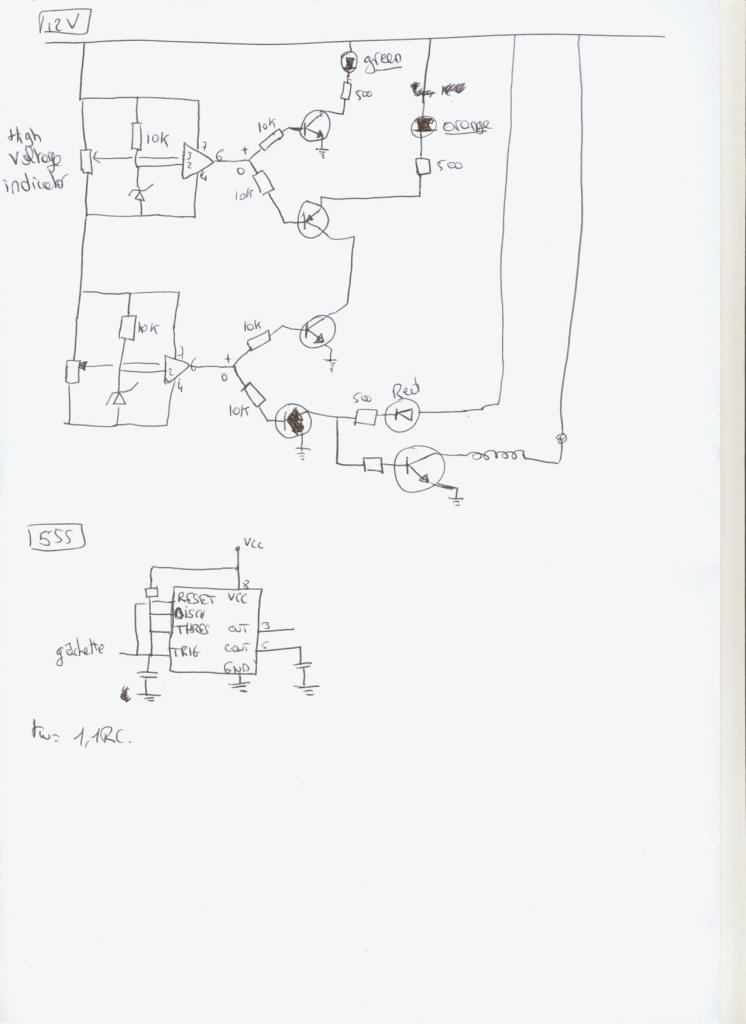 12V
green
500
orange
500
High
Voltage
indicator
10K
7
3
2
6
4
+
0
10K
10K
10K
7
2
6
4
+
0
10K
10K
500
Red
555
VCC
8
RESET
VCC
DISCH
THRES
OUT
3
gâchette
TRIG
CONT
5
GND
tw= 1,1RC.